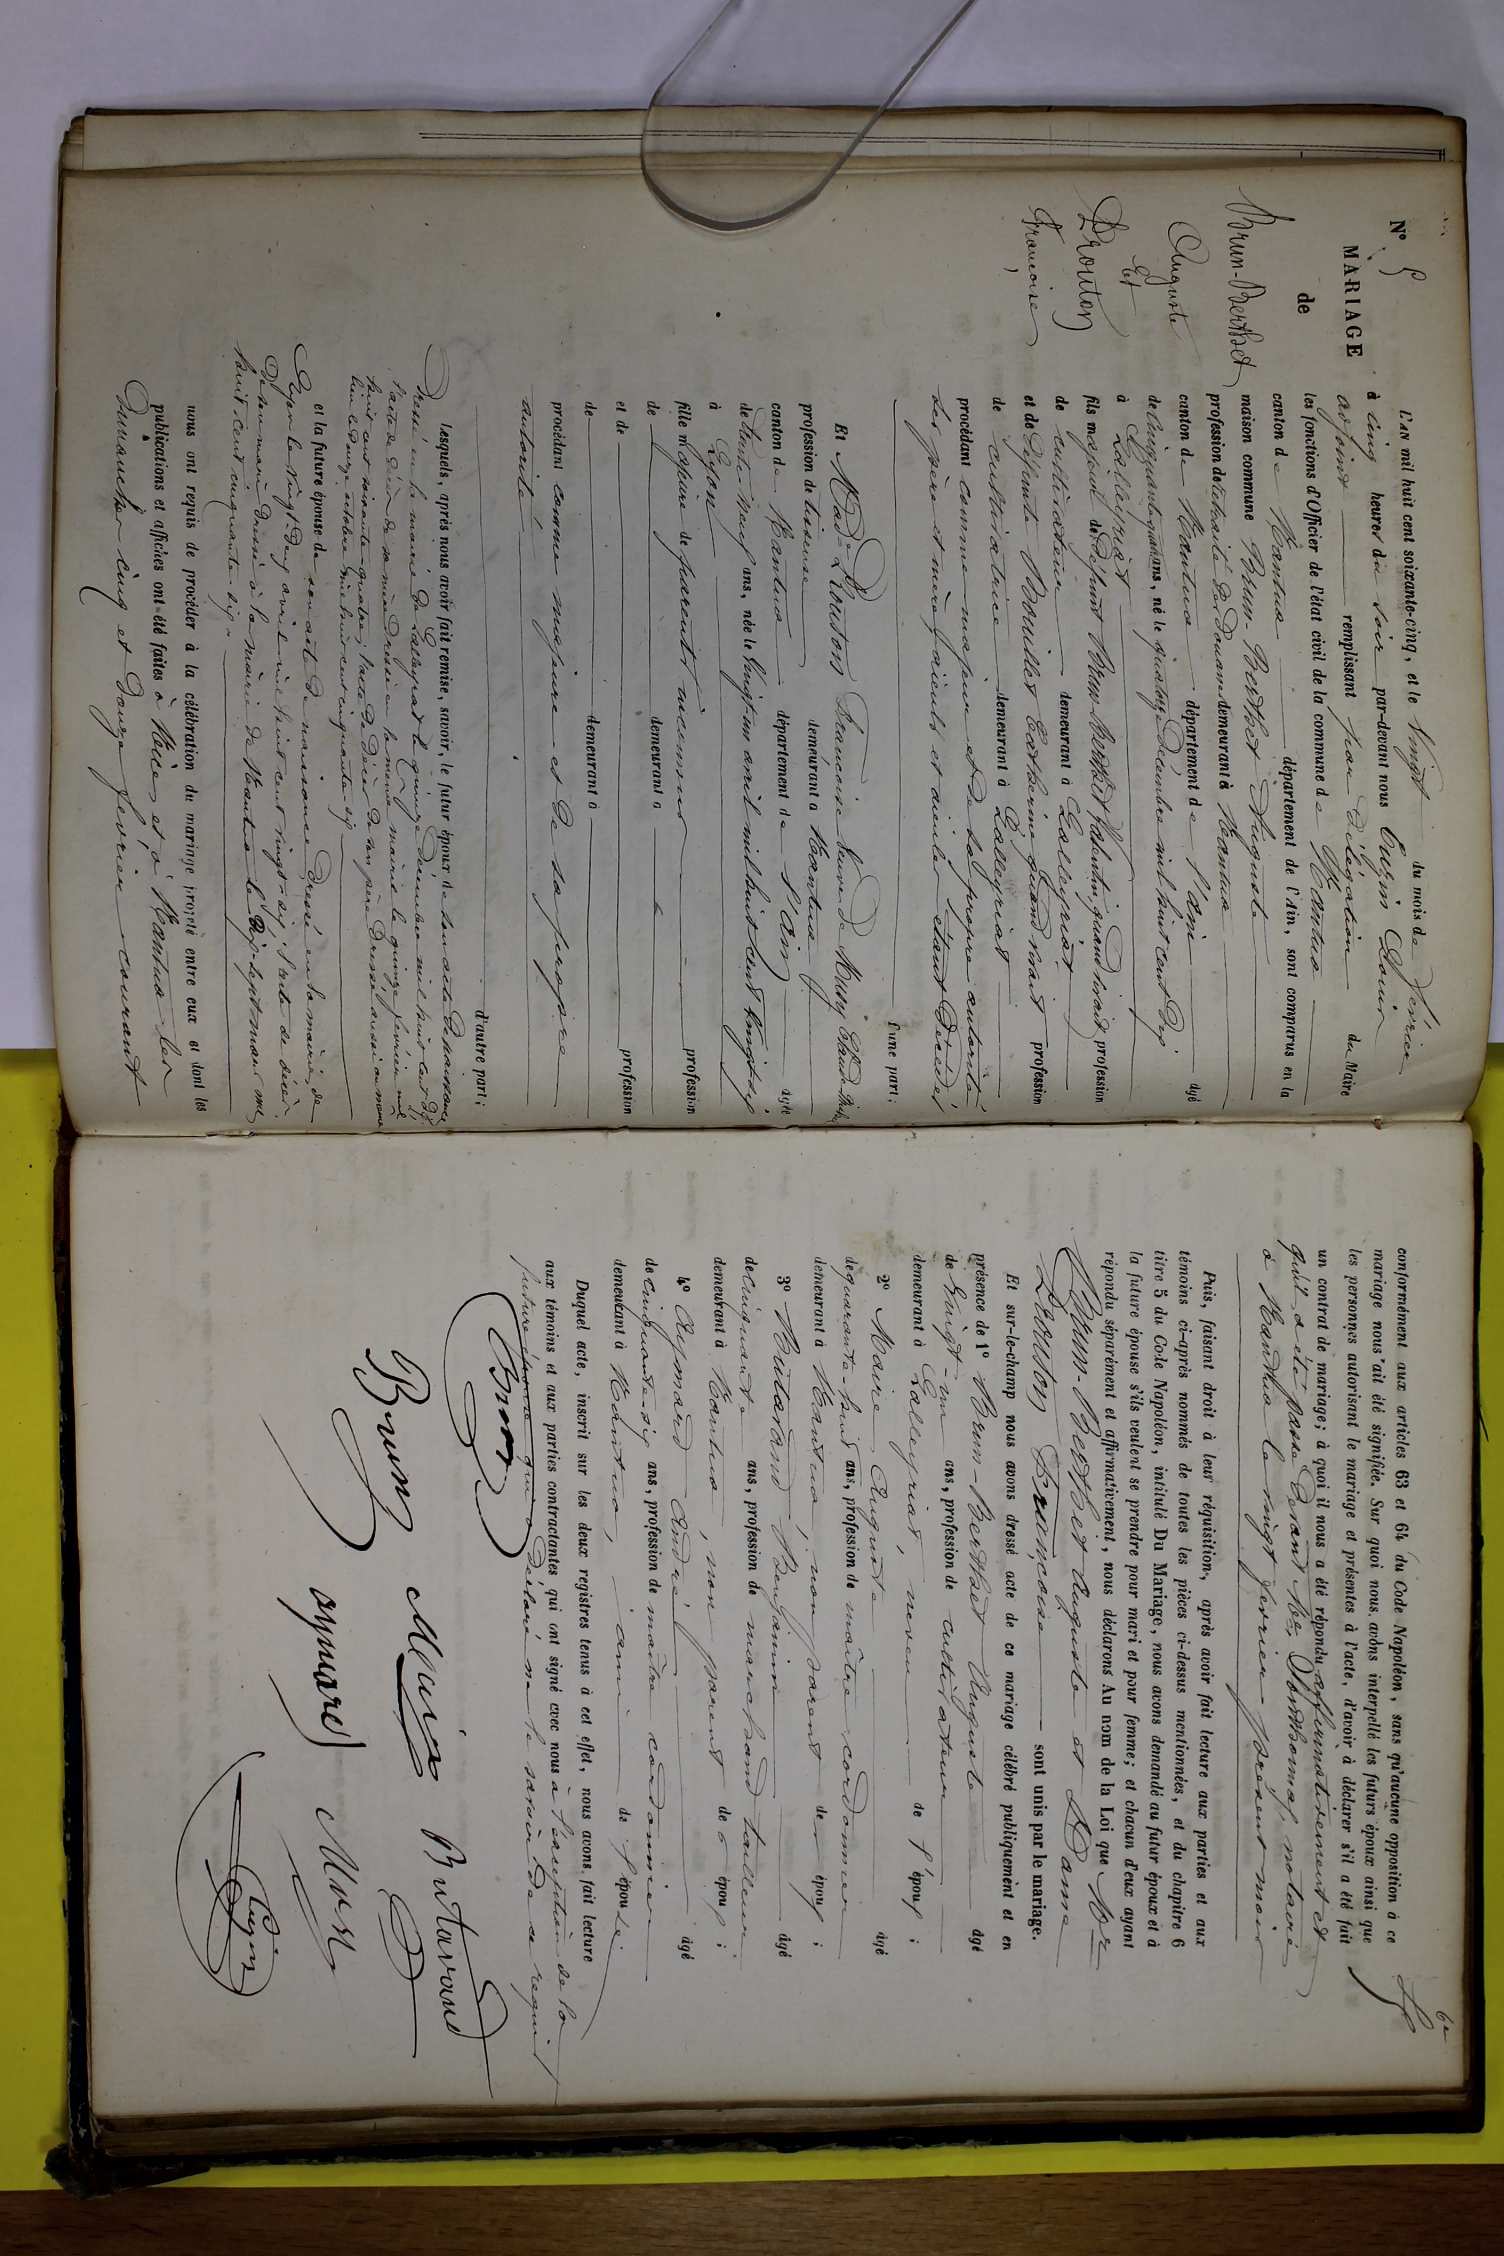 N° 5
MARIAGE
de
Brun-Berthet
Auguste
Et
Drouton
Francoise
L'AN mil huit cent soixante-cinq, et le vingt du mois de février
à cinq heures du soir par-devant nous Cugin Louis
adjoint remplissant par délégation du Maire
les fonctions d'Officier de l'état civil de la commune de Nantua
canton de Nantua département de l'Ain, sont comparus en la
maison commune Brun-Berthet Auguste
profession de retraité des Douanes demeurant à Nantua
canton de Nantua département de l'Ain âgé
de cinquante quatre ans, né le quatorze Décembre mil huit cent dix
à Lalleyriat
fils majeur de défunt Brun-Berthet Valentin, quand vivait profession
de cultivateur demeurant à Lalleyriat
et de Défunte Bouillet Catherine quand vivait profession
de cultivatrice demeurant à Lalleyriat
procédant comme majeur et de sa propre autorité
ses père et mère, aïeuls et aïeules étant décédés
d'une part;
Et Mad.e Drouton Francoise Veuve de Musy Claude
profession de tisseuse demeurant à Nantua
canton de Nantua département de l'Ain âgée
de trente neuf ans, née le vingt un avril mil huit cent vingt-six
à Lyon
fille majeure de parents inconnus profession
de demeurant à
et de profession
de demeurant à
procédant comme majeure et de sa propre
autorité
d'autre part;
Lesquels, après nous avoir fait remise, savoir, le futur époux de son acte de naissance
dressé en la mairie de Lalleyriat le quinze décembre mil huit cent dix,
l'acte de décès de sa mère dressé en la même mairie le quinze février mil
huit cent soixante quatre, l'acte de décès de son père dressé aussi au même
lieu le douze octobre mil huit cent cinquante six
et la future épouse de son acte de naissance dressé en la mairie de
Lyon le vingt-deux avril mil huit cent vingt-six, l'acte de décès
de son mari dressé à la mairie de Nantua le dix-sept mars mil
huit cent cinquante-six.
nous ont requis de procéder à la célébration du mariage projeté entre eux et dont les
publications et affiches ont été faites à et à Nantua les
dimanches cinq et douze février courant
conformément aux articles 63 et 64 du Code Napoléon, sans qu'aucune opposition à ce
mariage nous ait été signifiée. Sur quoi nous avons interpellé les futurs époux ainsi que
les personnes autorisant le mariage et présentes à l'acte, d'avoir à déclarer s'il a été fait
un contrat de mariage; à quoi il nous a été répondu affirmativement et
qu'il a été passé devant Me notaire
à Nantua le vingt février présent mois
Puis, faisant droit à leur réquisition, après avoir fait lecture aux parties et aux
témoins ci-après nommés de toutes les pièces ci-dessus mentionnées, et du chapitre 6
titre 5 du Code Napoléon, intitulé Du Mariage, nous avons demandé au futur époux et à
la future épouse s'ils veulent se prendre pour mari et pour femme; et chacun d'eux ayant
répondu séparément et affirmativement, nous déclarons Au nom de la Loi que Mr
Brun-Berthet Auguste et Dame
Drouton Françoise sont unis par le mariage.
Et sur-le-champ nous avons dressé acte de ce mariage célébré publiquement et en
présence de 1° Brun-Berthet Auguste âgé
de vingt-un ans, profession de cultivateur
demeurant à Lalleyriat, neveu de l'époux;
2° Maire Auguste âgé
de quarante-huit ans, profession de maître cordonnier
demeurant à Nantua, non parent des époux;
3° Butavand Benjamin âgé
de cinquante ans, profession de marchand tailleur
demeurant à Nantua, non parent des époux;
4° Aymard André âgé
de cinquante-six ans, profession de maître cordonnier
demeurant à Nantua, ami de l'épouse;
Duquel acte, inscrit sur les deux registres tenus à cet effet, nous avons fait lecture
aux témoins et aux parties contractantes qui ont signé avec nous à l'exception de la
future épouse qui a déclaré ne le savoir de ce requis
Brun
Brun Maire Butavand
aymard
Cugin